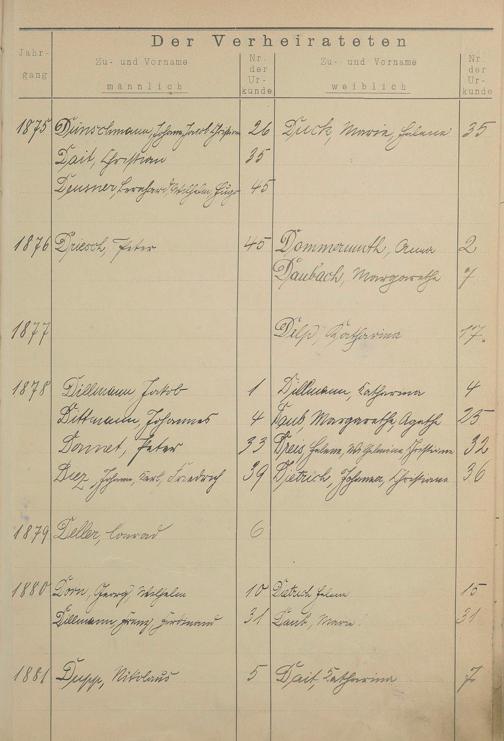 Der Verheirateten
Jahr-
gang
Zu- und Vorname
männlich
Nr.
der
Ur-
kunde
Zu- und Vorname
weiblich
Nr.
der
Ur-
kunde
1875 Johann Jakob Christian 26 Duck, Marie, Helene 35
Dait, Christian 35
Deusner, Bernhard Wilhelm Hugo 45
1876 Driesch, Peter 45 Dommermuth, Anna 2
Daubach, Margarethe 7
1877 Delp, Katharina 17.
1878 Dillmann, Jakob 1 Dillmann, Katharina 4
Dittmann, Johannes 4 Daub, Margarethe Agathe 25
Peter 33 Dreis, Helene, Wilhelmine Christiane 32
Diez, Johann, Karl, Friedrich 39 Dietrich, Johanna, Christiane 36
1879 Deller, Conrad 6
1880 Dorn, Georg Wilhelm 10 Dietrich 15
Dillmann, Franz, Ferdinand 31 Daub, Marie 31
1881 Nikolaus 5 Dait, Katharina 7